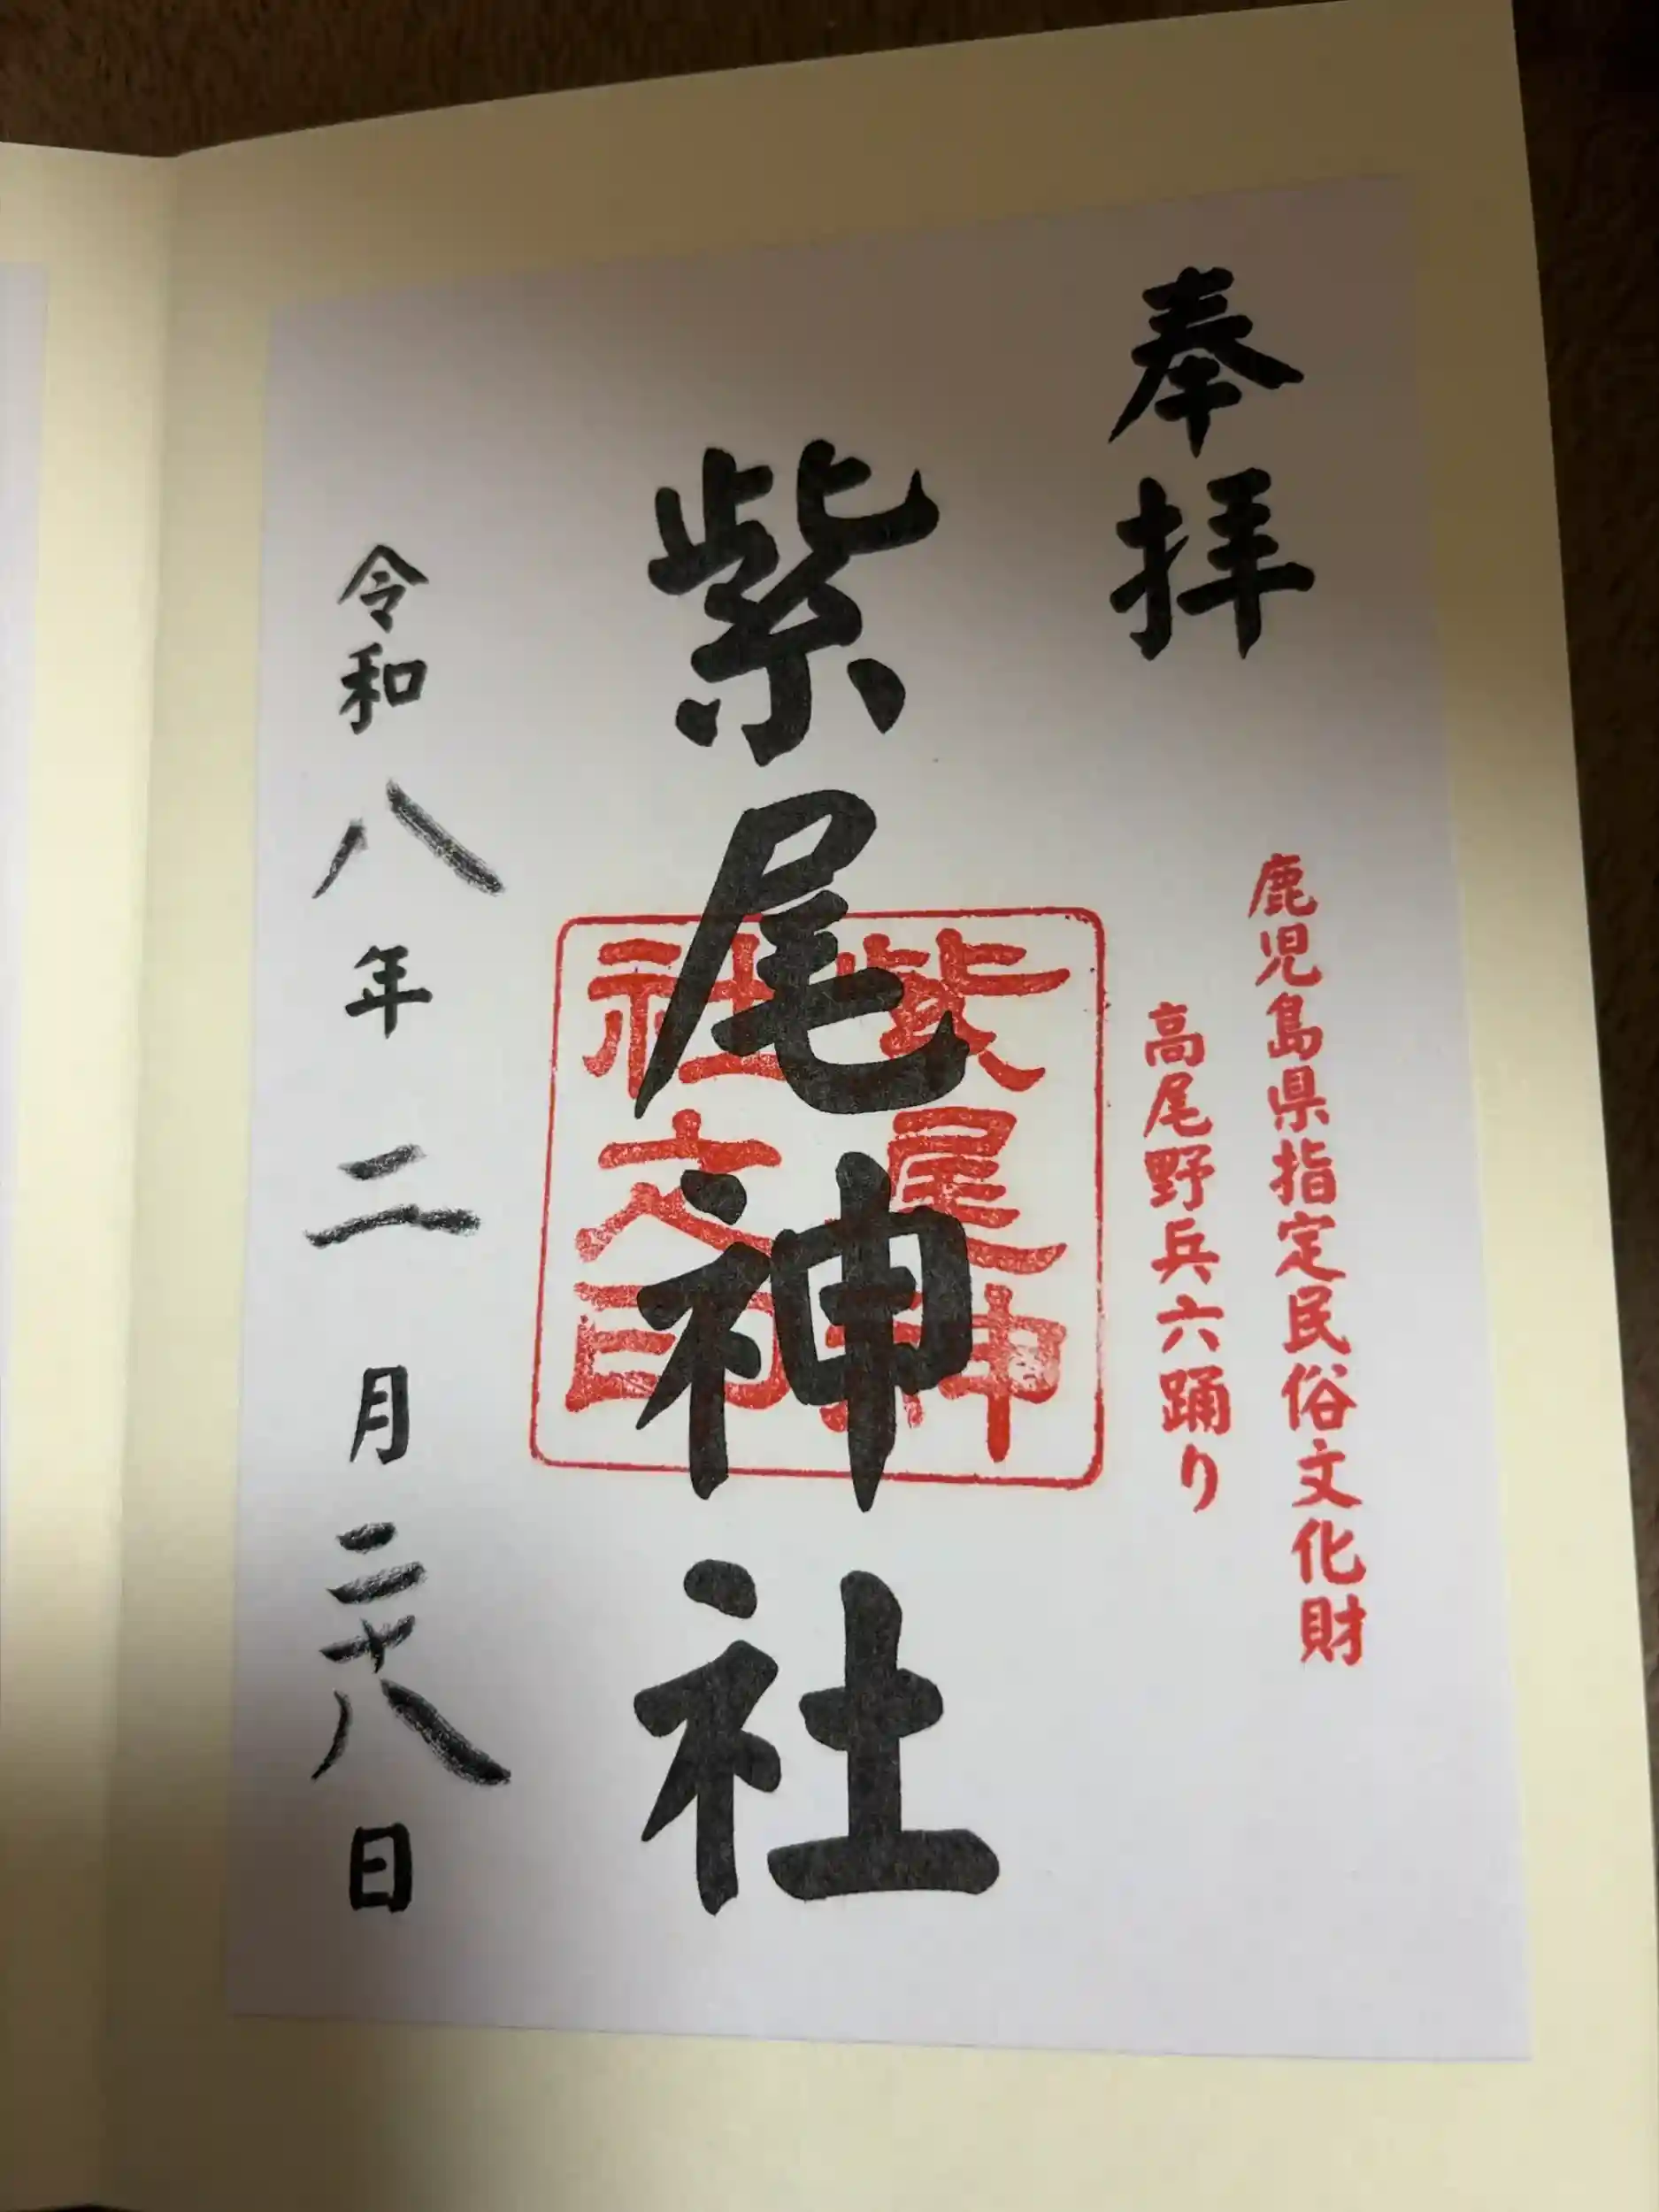 奉拝
鹿児島県指定民俗文化財
高尾野兵六踊り
紫尾神社
紫尾神
社之印
令和八年二月二十八日